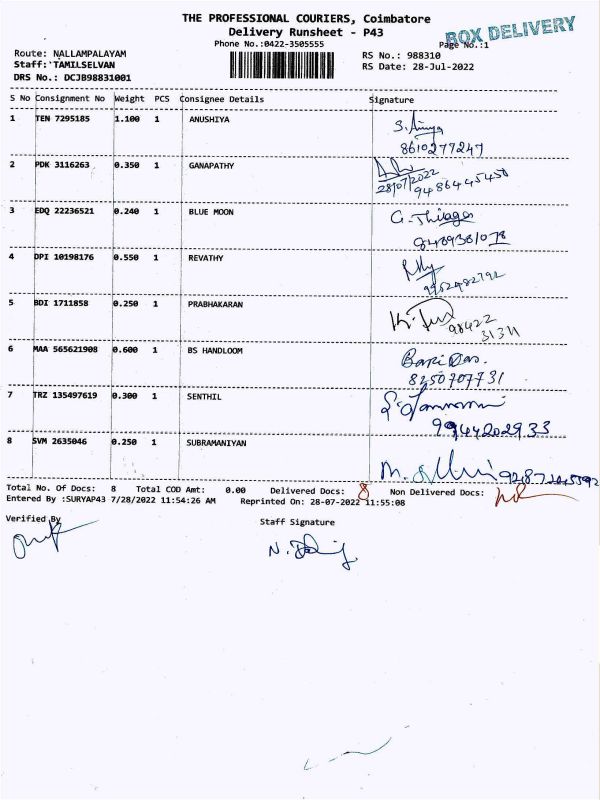 THE PROFESSIONAL COURIERS, Coimbatore
BOX DELIVERY
Delivery Runsheet - P43
Phone No.:0422-3505555
Page No.:1
Route: NALLAMPALAYAM
RS No.: 988310
Staff: TAMILSELVAN
RS Date: 28-Jul-2022
DRS No.: DCJB98831001
S No Consignment No Weight PCS Consignee Details Signature
1 TEN 7295185 1.100 1 ANUSHIYA
8610277247
2 PDK 3116263 0.350 1 GANAPATHY
28/07/2022
9486445450
3 EDQ 22236521 0.240 1 BLUE MOON
4 DPI 10198176 0.550 1 REVATHY
5 BDI 1711858 0.250 1 PRABHAKARAN
98422
31311
6 MAA 565621908 0.600 1 BS HANDLOOM
8250707731
7 TRZ 135497619 0.300 1 SENTHIL
8 SVM 2635046 0.250 1 SUBRAMANIYAN
Total No. Of Docs: 8 Total COD Amt: 0.00 Delivered Docs: 8 Non Delivered Docs:
Entered By :SURYAP43 7/28/2022 11:54:26 AM Reprinted On: 28-07-2022 11:55:08
Verified By
Staff Signature